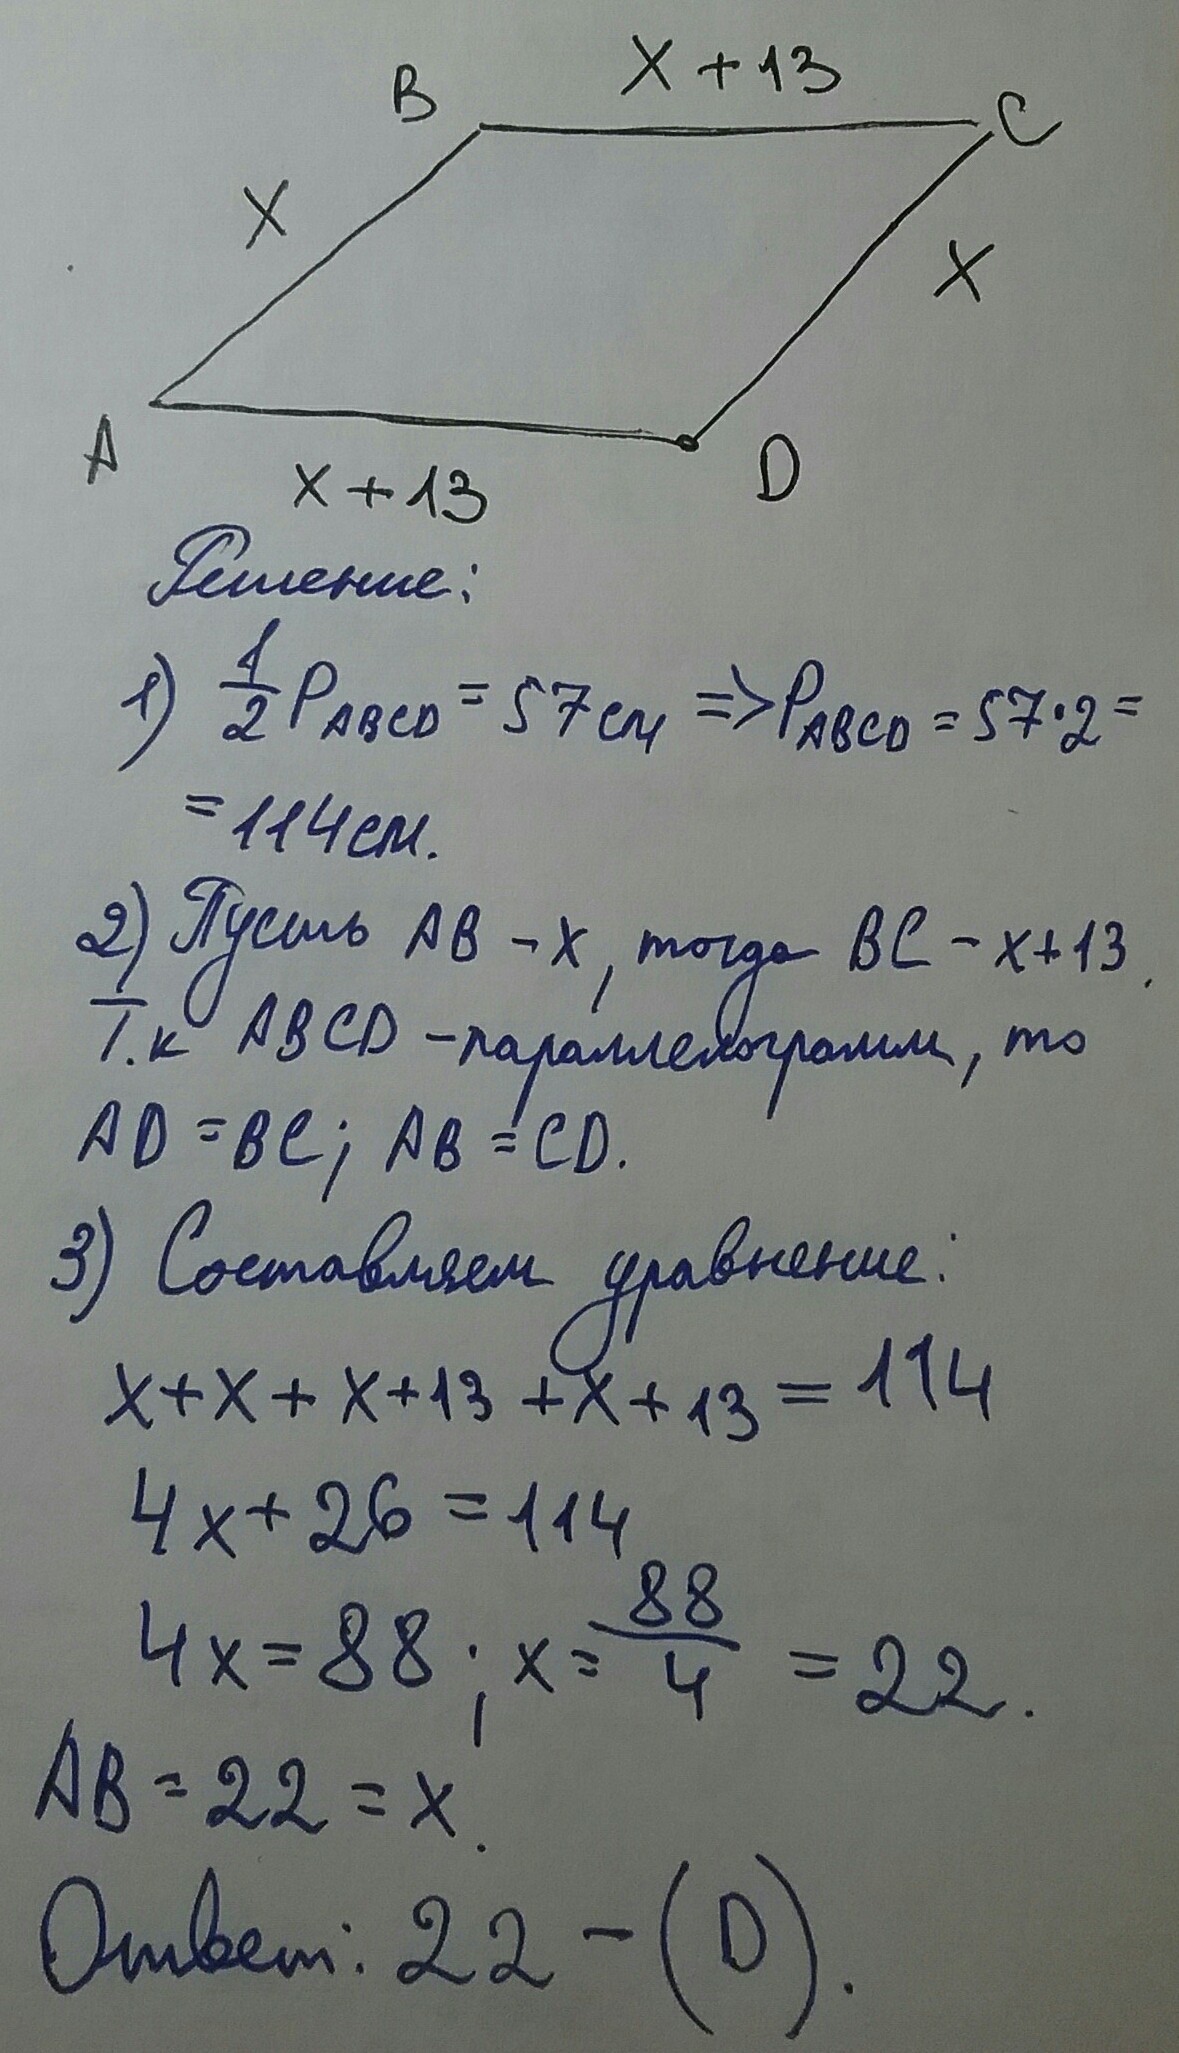 x + 13
B
C
x
x
A
D
x + 13
Решение:
1) 1/2 P_ABCD = 57см => P_ABCD = 57·2 =
= 114см.
2) Пусть AB - x, тогда BC - x+13.
Т.к ABCD - параллелограмм, то
AD = BC; AB = CD.
3) Составляем уравнение:
x + x + x + 13 + x + 13 = 114
4x + 26 = 114
4x = 88; x = 88/4 = 22.
AB = 22 = x.
Ответ: 22 - (D).